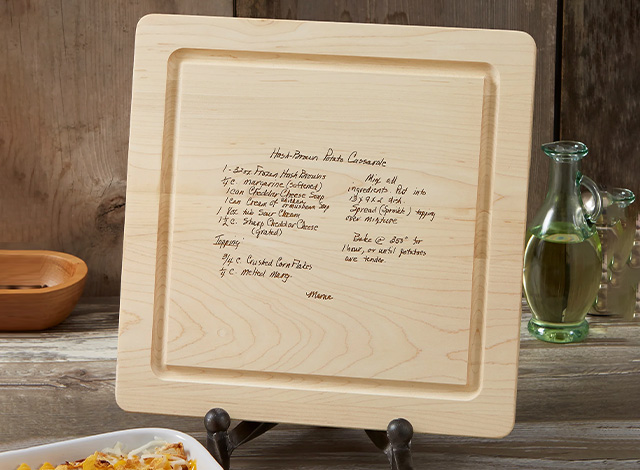 Hash-Brown Potato Casserole
1 - 32oz Frozen Hash Browns
1/4 c. margarine (softened)
1 can Cheddar Cheese Soup
1 can Cream of chicken mushroom Soup
1 8oz tub Sour Cream
1 1/2 c. Sharp Cheddar Cheese
(grated)
Topping
3/4 c. Crushed Corn Flakes
1/4 c. melted Marg.
Mix all
ingredients Put into
13 x 9 x 2 dish.
Spread (Sprinkle) topping
over mixture.
Bake @ 350° for
1 hour, or until potatoes
are tender.